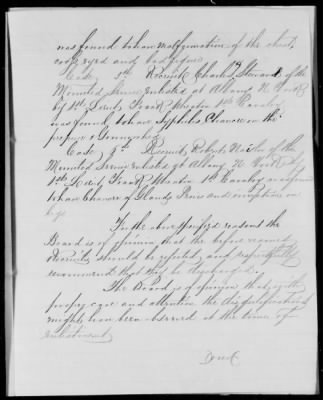 was found to have malformation of the chest,
eyed and bad
Case 5th Recruit Charles Steward of the
Mounted Service enlisted at Albany N York
by 1st Lieut Frank Wheaton 1st Cavalry
was found to have Syphilis Chancre on the
prepuce &
Case 3rd Recruit Robert of the
Mounted Service enlisted at Albany N York by
1st Lieut Frank Wheaton 1st Cavalry
to have Chancre of Glands Penis and eruptions on
For the above specified reasons the
Board is of opinion that the before named
Recruits should be rejected, and respectfully
recommend that they be discharged.
The Board is of opinion that with
proper care and attention the disqualifications
might have been observed at the time of
enlistment.